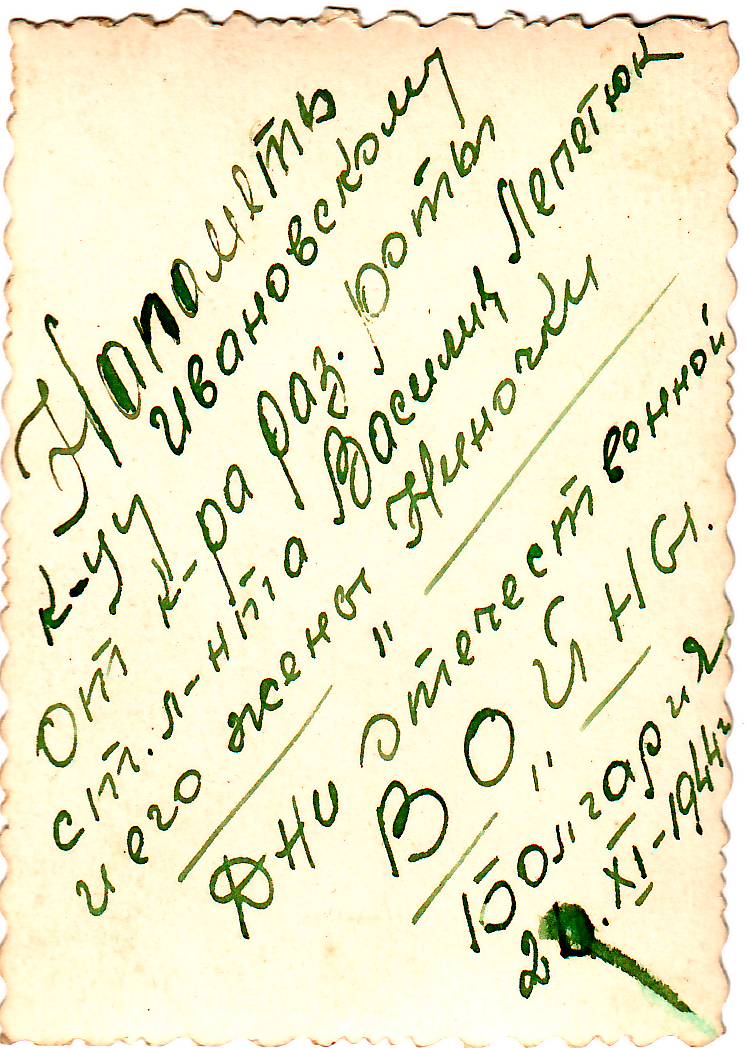 На память
к-уу Ивановскому
от к-ра раз. роты
ст. л-нта Василия Лепетюк
и его жены Ниночки
"
Дни отечественной
Войны.
"
Болгария
2 . XI-1944г